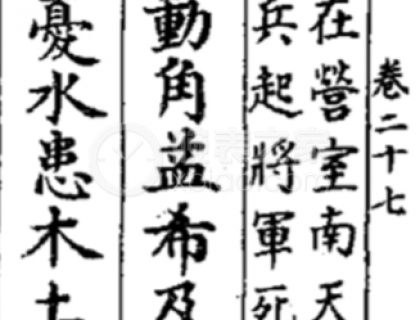 卷二十七
在營室南天
兵起將軍死
動角益希及
憂水患木土